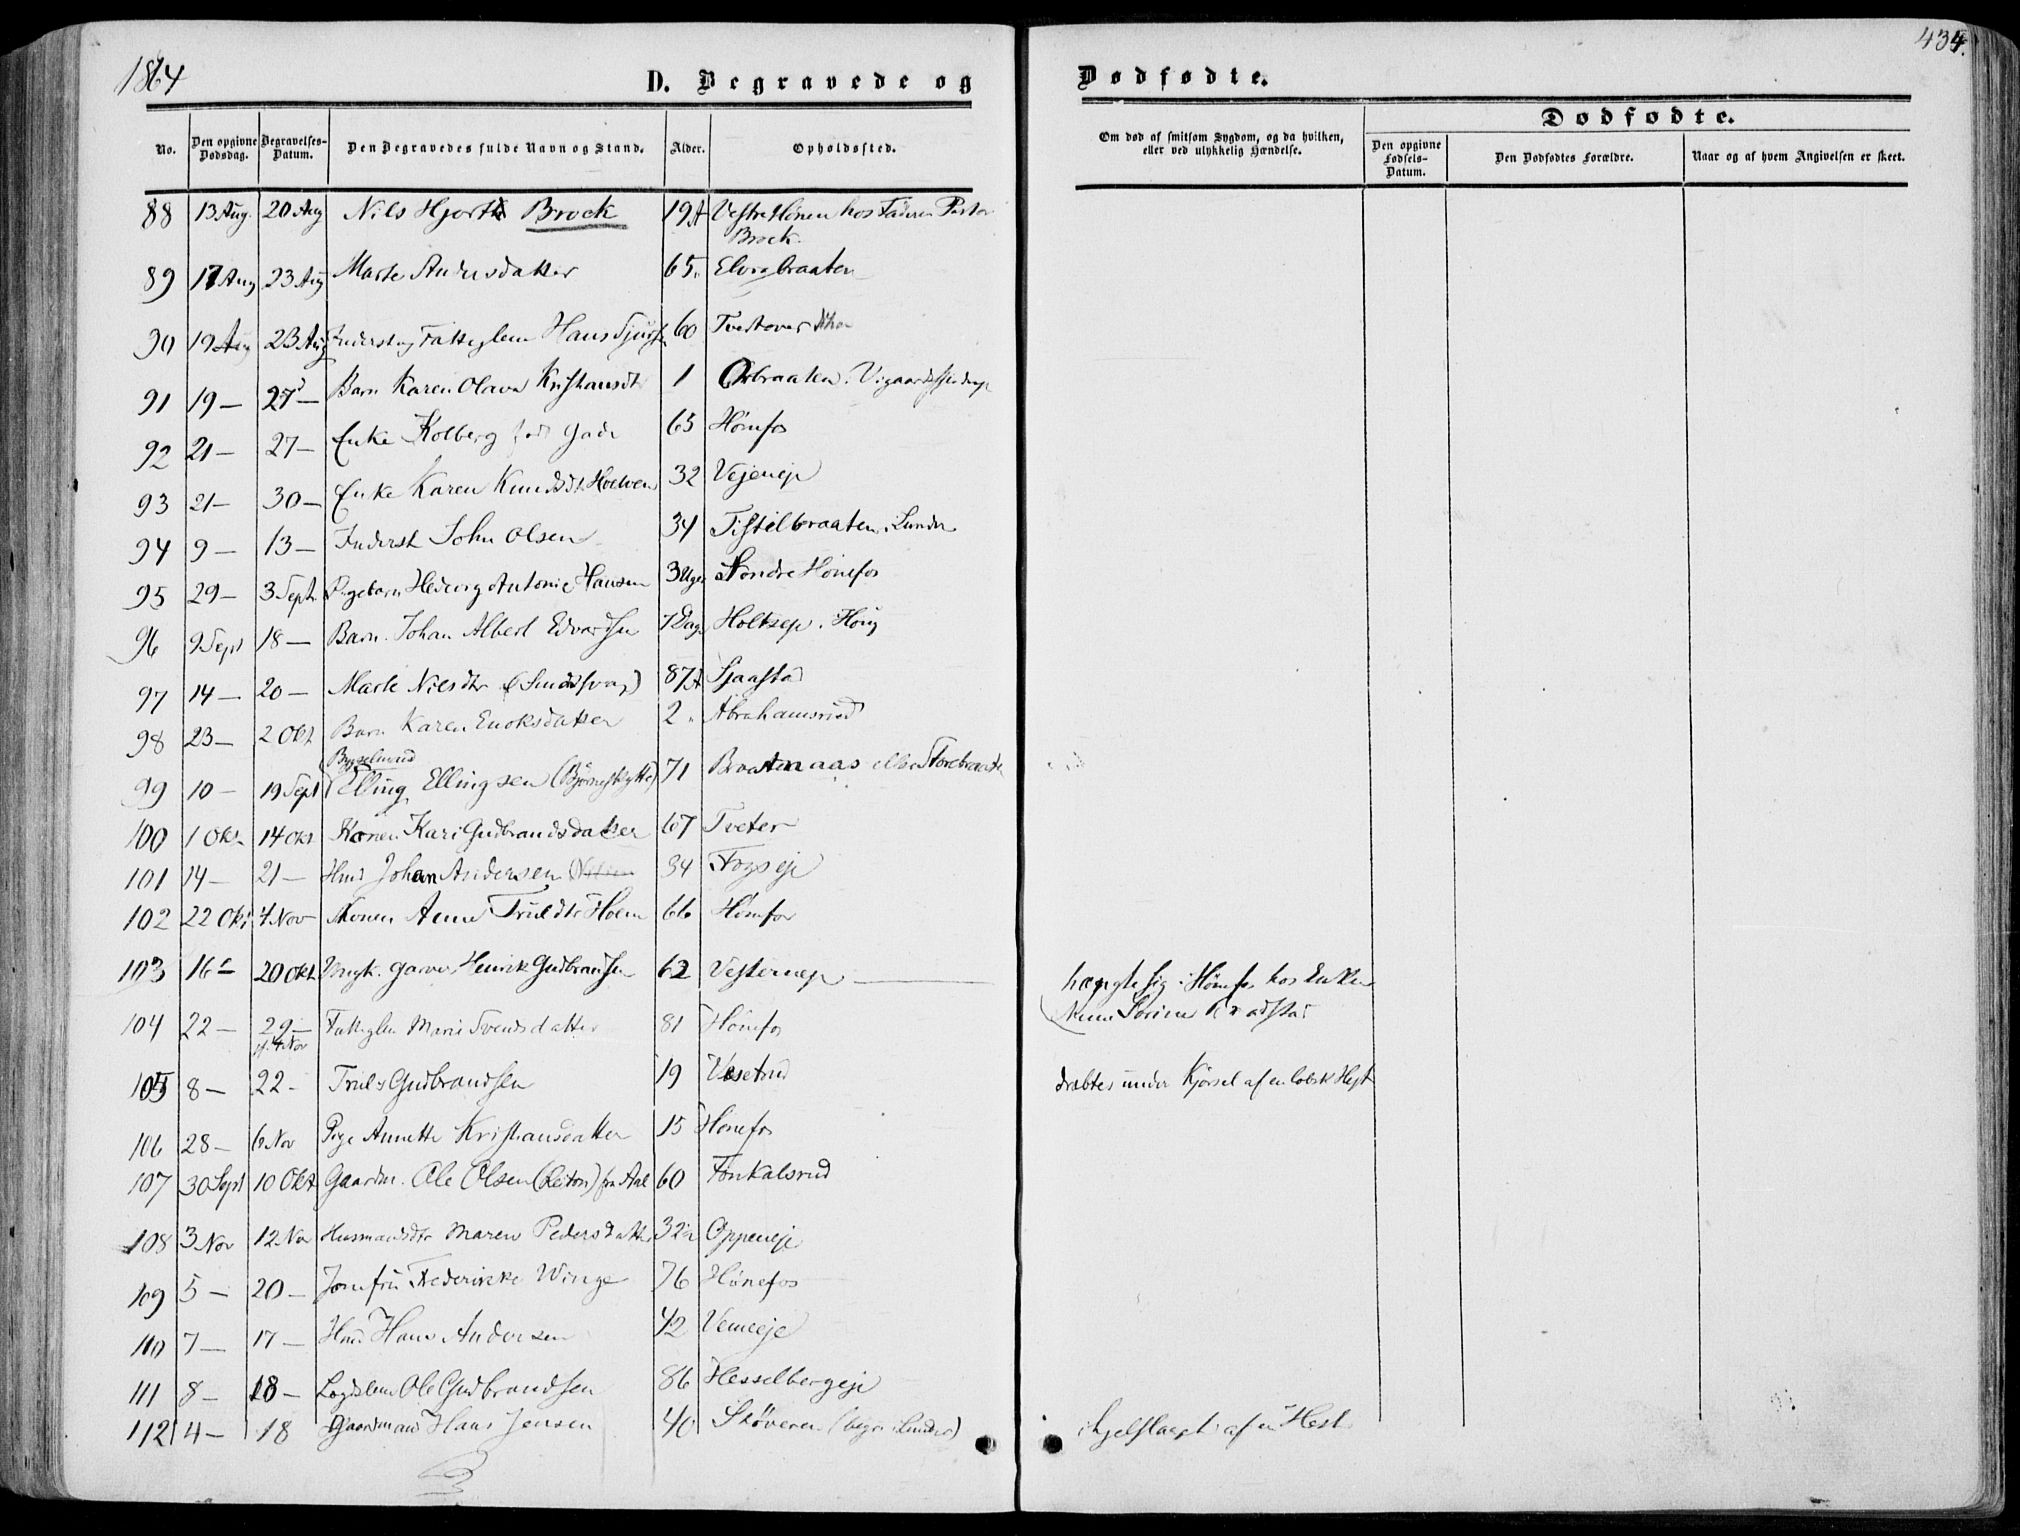 1864
434.
D. Begravede og Dødfødte.
No.
Den opgivne Dødsdag.
Begravelses-Datum.
Den Begravedes fulde Navn og Stand.
Alder.
Opholdssted.
Om død af smitsom Sygdom, og da hvilken, eller ved ulykkelig Hændelse.
Dødfødte.
Den opgivne Fødsels-Datum.
Den Dødfødtes Forældre.
Naar og af hvem Angivelsen er skeet.
88 13 Aug. 20 Aug Nils Hjorth Brock 19 A Vestre Hønen hos Faderen Pastor
Brock.
89 17 Aug 23 Aug Marte Andersdatter 65 Elvrabraaten
90 19 Aug 23 Aug Inderst og Fatteglem Hans 60
91 19 — 27 — Barn Karen Olava Kristiansdtr 1
92 21 — 27 — Enke Kolberg født Gade 65 Hønefos
93 21 — 30 — Enke Karen Knudsdtr 32 Vejeneje
94 9 — 13 — Inderst John Olsen 34 Tistelbraaten. Lunder
95 29 — 3 Sept. Pigebarn Hedevig Antonie Hansen 3 Uger Nordre Hønefos
96 9 Sept 18 — Barn Johan Albert Edvardsen 7 Dage
97 14 — 20 — Marte Nilsdtr 87 A Sjaastad
98 23 — 2 Okt Barn Karen Enoksdatter 2 Abrahamsrud
Bygselmand
99 10 — 19 Sept Elling Ellingsen (Bjørneskytte) 71 Braatenaas eller Storebraaten
100 1 Okt. 14 Okt Konen Kari Gudbrandsdatter 67 Tveter
101 14 — 21 — Hmd Johan Andersen 34
102 22 Okt 4 Nov Konen Anne Trulsdtr Holm 66 Hønefos
103 16 — 20 Okt. Ungk. Garver Henrik Gudbrandsen 62 Vesterneje — hængte sig i Hønefos hos Enken
Anne Sørine
104 22 — 29 — Fatteglem Marie Svendsdatter 81 Hønefos
4 Nov
105 8 — 22 — Truls Gudbrandsen 19 Vesetrud dræbtes under Kjørsel af en løbsk Hest
106 28 — 6 Nov Pige Annette Kristiansdatter 15 Hønefos
107 30 Sept 10 Okt Gaardm. Ole Olsen (Leiton) fra Aal 60 Fonkalsrud
108 3 Nov 12 Nov Husmandsdtr Maren Pedersdatter 32 Oppeneje
109 5 — 20 — Jomfru Frederikke Winge 76 Hønefos
110 7 — 17 — Hmd Hans Andersen 42 Vemeeje
111 8 — 18 — Lægdslem Ole Gudbrandsen 86 Hesselbergeje
112 4 — 18 Gaardmand Hans Jensen 40 Støveren (begr. i Lunder) ihjelslaget af en Hest